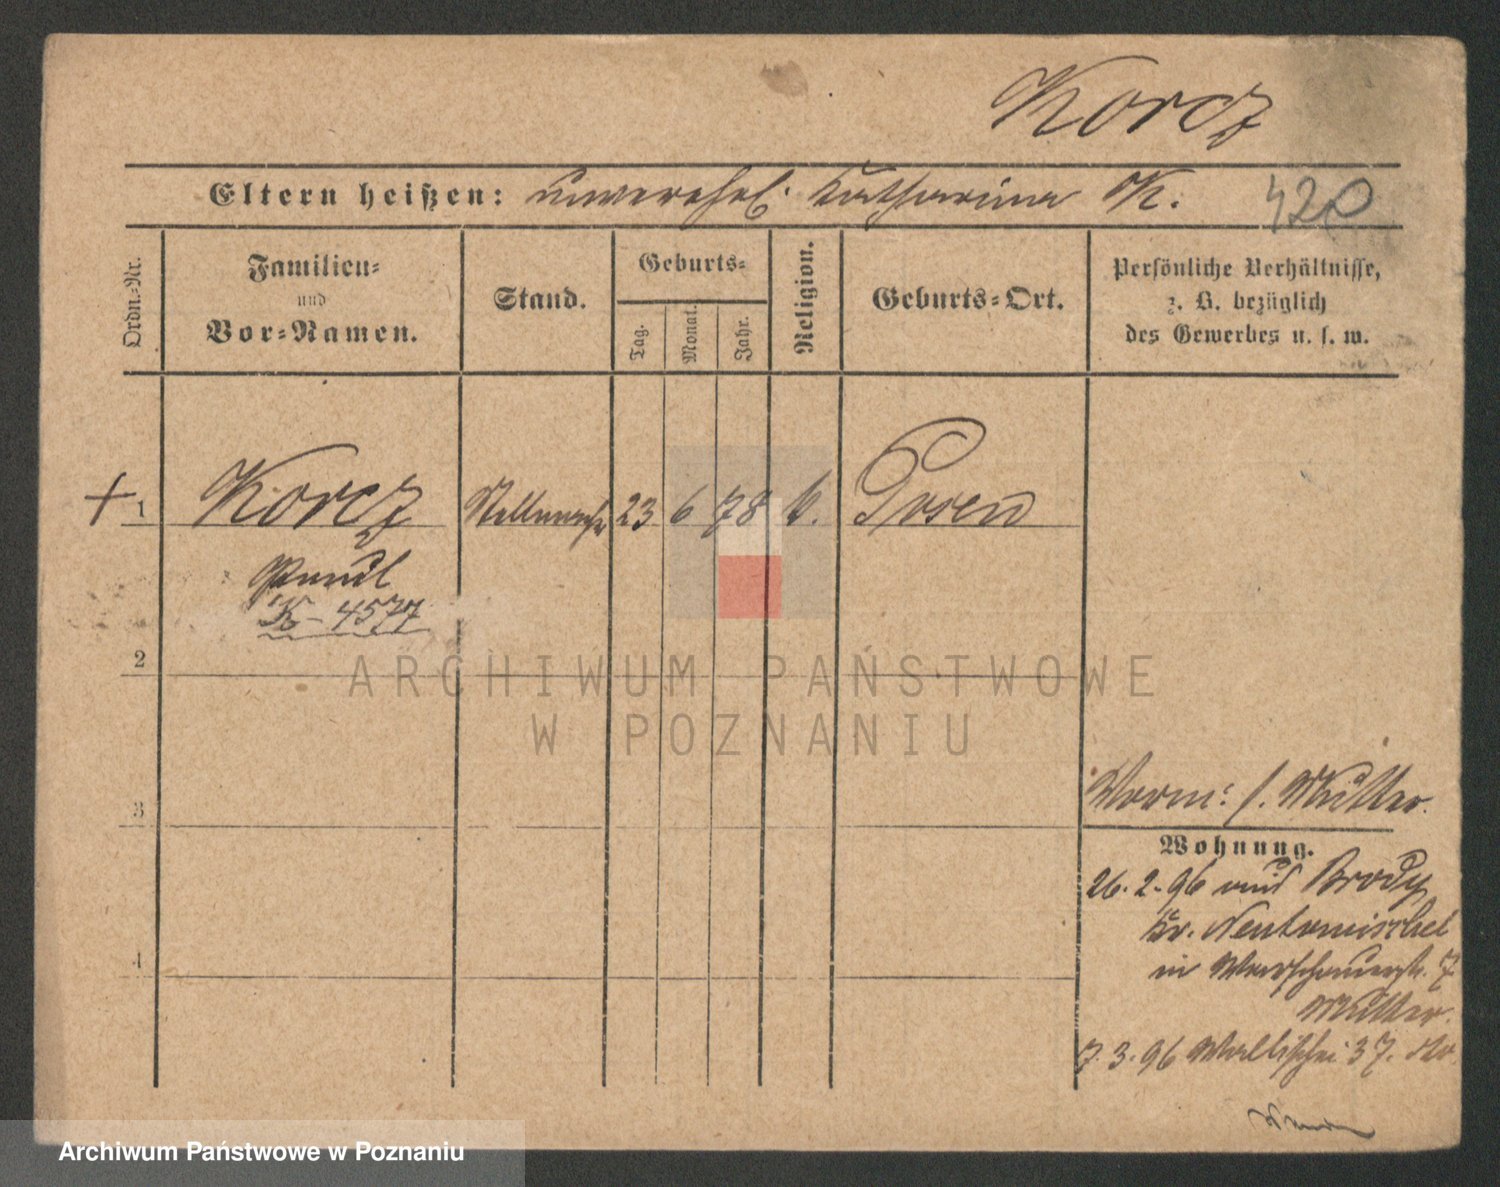 Korcz
Eltern heißen: unverehel. Katharina K.
420
Ordn.-Nr.
Familien-
und
Vor-Namen.
Stand.
Geburts-
Tag.
Monat.
Jahr.
Religion.
Geburts-Ort.
Persönliche Verhältnisse,
z. B. bezüglich
des Gewerbes u. s. w.
+ 1 Korcz Stellmacher 23 6 78 k. Posen
Paul
K-4577
2
ARCHIWUM PAŃSTWOWE
W POZNANIU
3
Vorm: s. Mutter.
Wohnung.
26. 2. 96 aus Brody
Kr. Neutomischel
4
in Warschauerstr. 7
Mutter.
7. 3. 96 Wallischei 37.
Archiwum Państwowe w Poznaniu